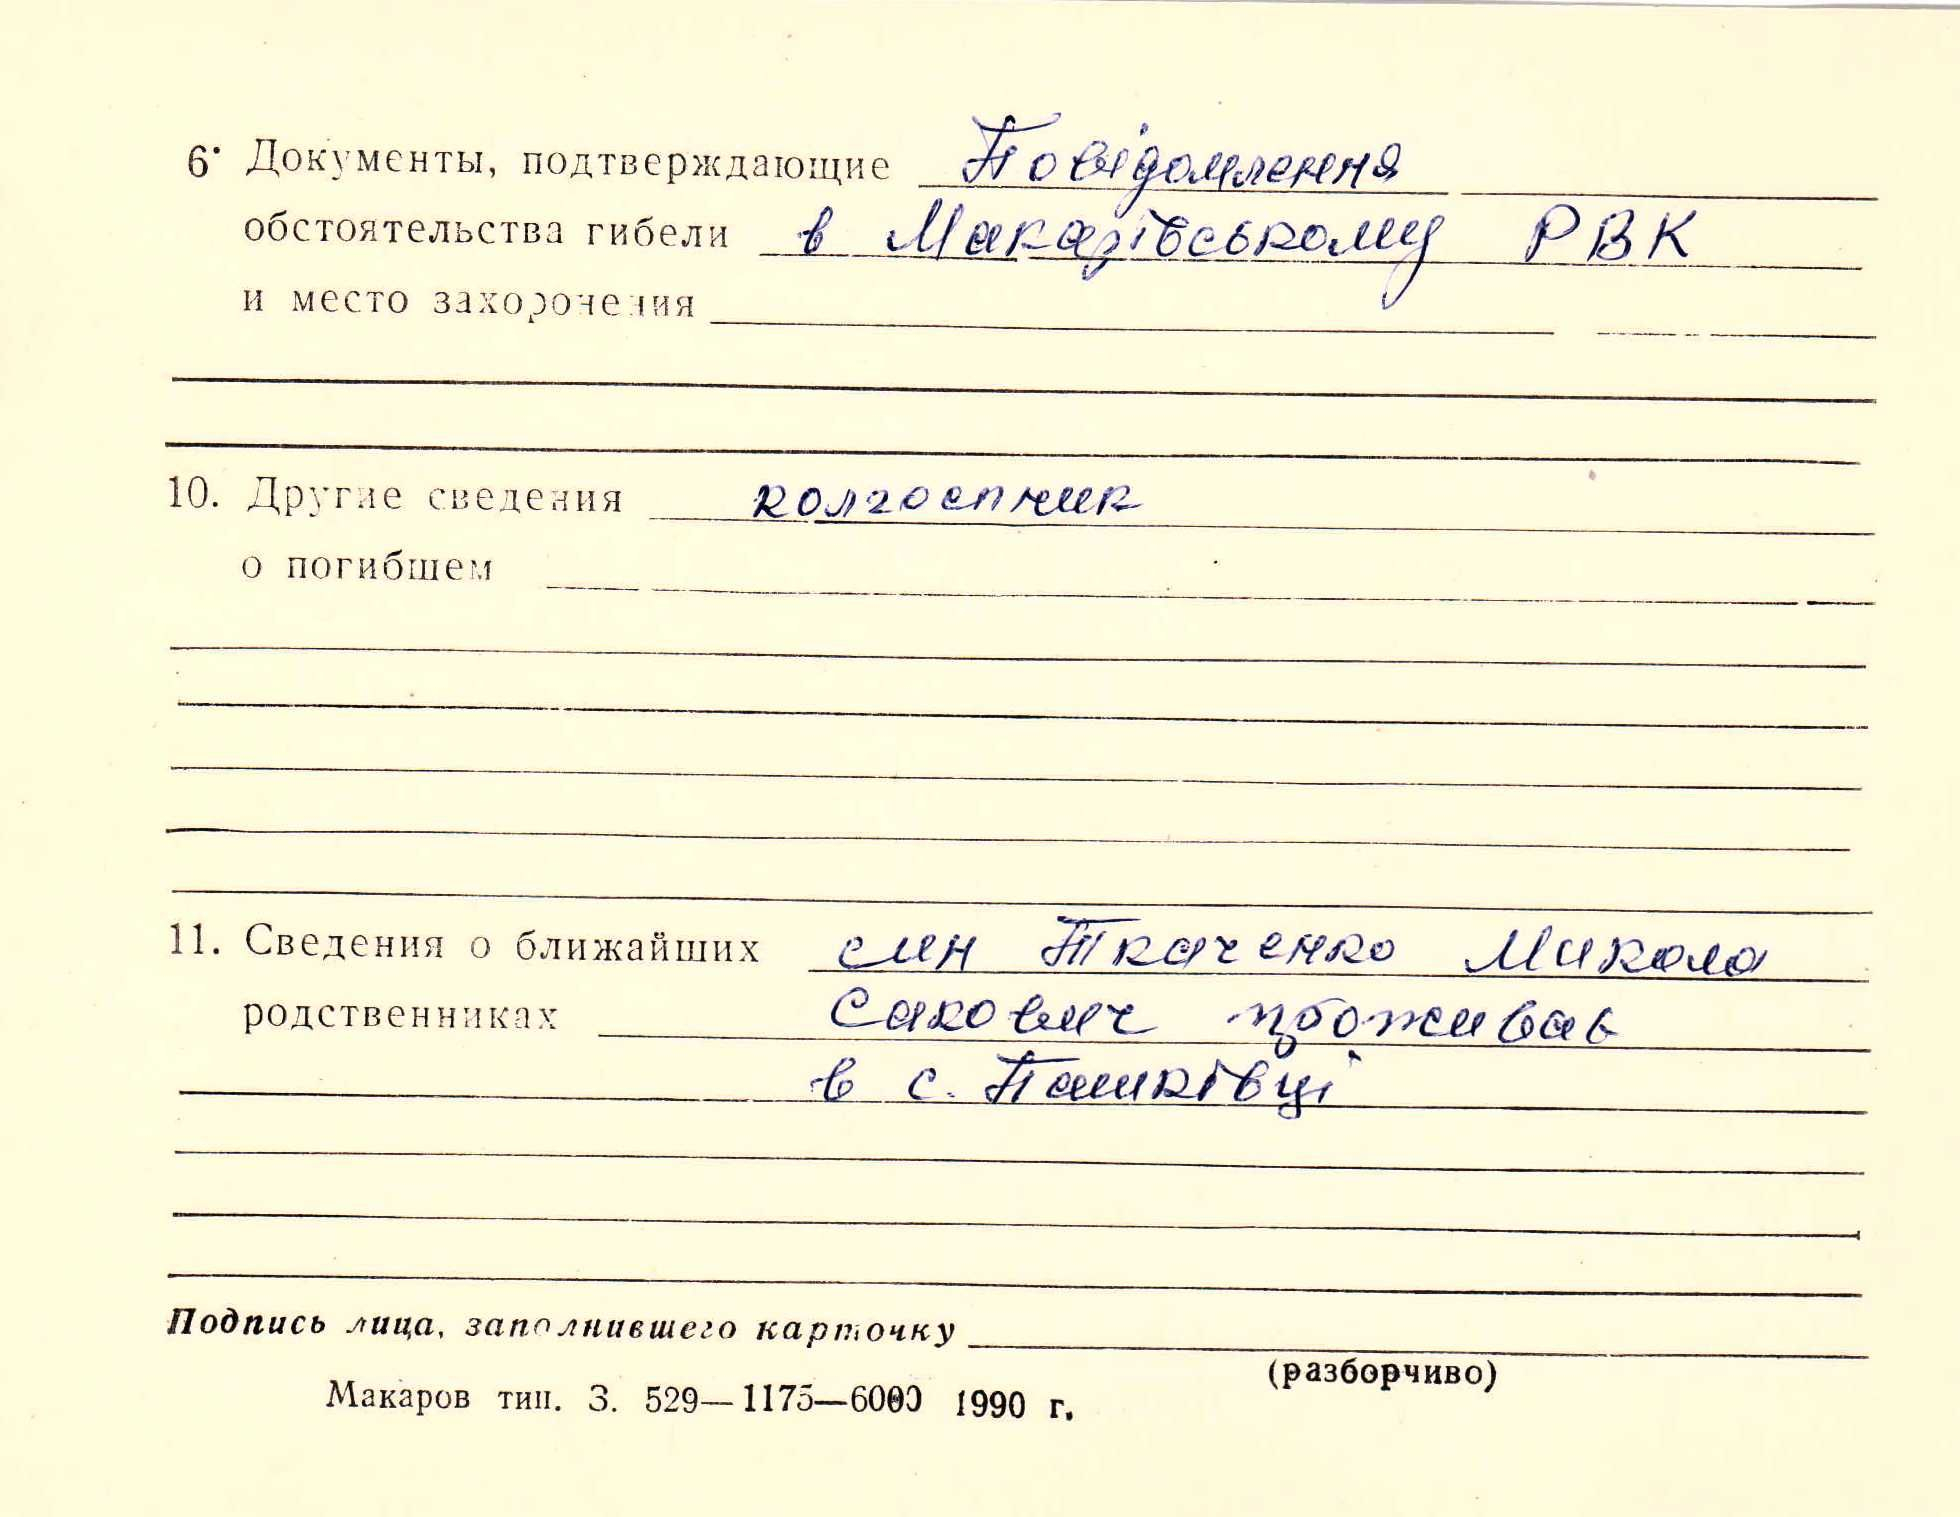 6. Документы, подтверждающие Повідомлення
обстоятельства гибели в Макарівському РВК
и место захоронения
10. Другие сведения колгоспник
о погибшем
11. Сведения о ближайших син Ткаченко Микола
родственниках Сакович проживав
в с. Пашківці
Подпись лица, заполнившего карточку
(разборчиво)
Макаров тип. З. 529—1175—6000 1990 г.